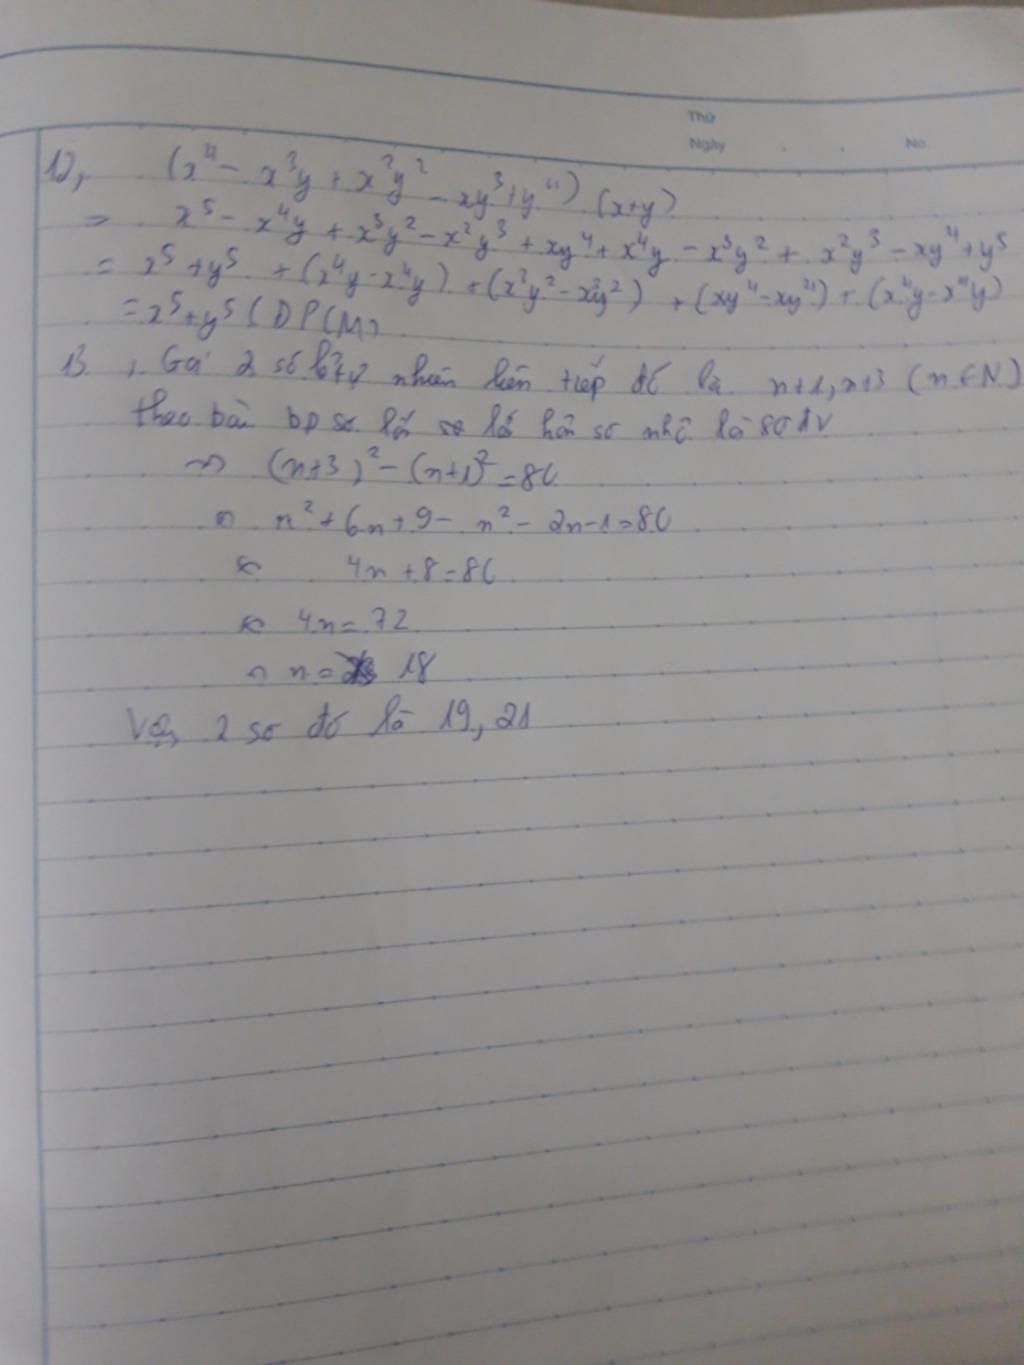 Thứ
Ngày No.
12, (x⁴ - x³y + x²y² - xy³ + y⁴) (x+y)
= x⁵ - x⁴y + x³y² - x²y³ + xy⁴ + x⁴y - x³y² + x²y³ - xy⁴ + y⁵
= x⁵ + y⁵ + (x⁴y - x⁴y) + (x²y² - x²y²) + (xy⁴ - xy⁴) + (x⁴y - x⁴y)
= x⁵ + y⁵ (ĐPCM)
13, Gọi 2 số lẻ tự nhiên liên tiếp đó là n+1, n+3 (n ∈ N)
theo bài bp số lớn hơn số nhỏ là 80 đv
=> (n+3)² - (n+1)² = 80
n² + 6n + 9 - n² - 2n - 1 = 80
4n + 8 = 80
4n = 72
n = 18
Vậy 2 số đó là 19, 21